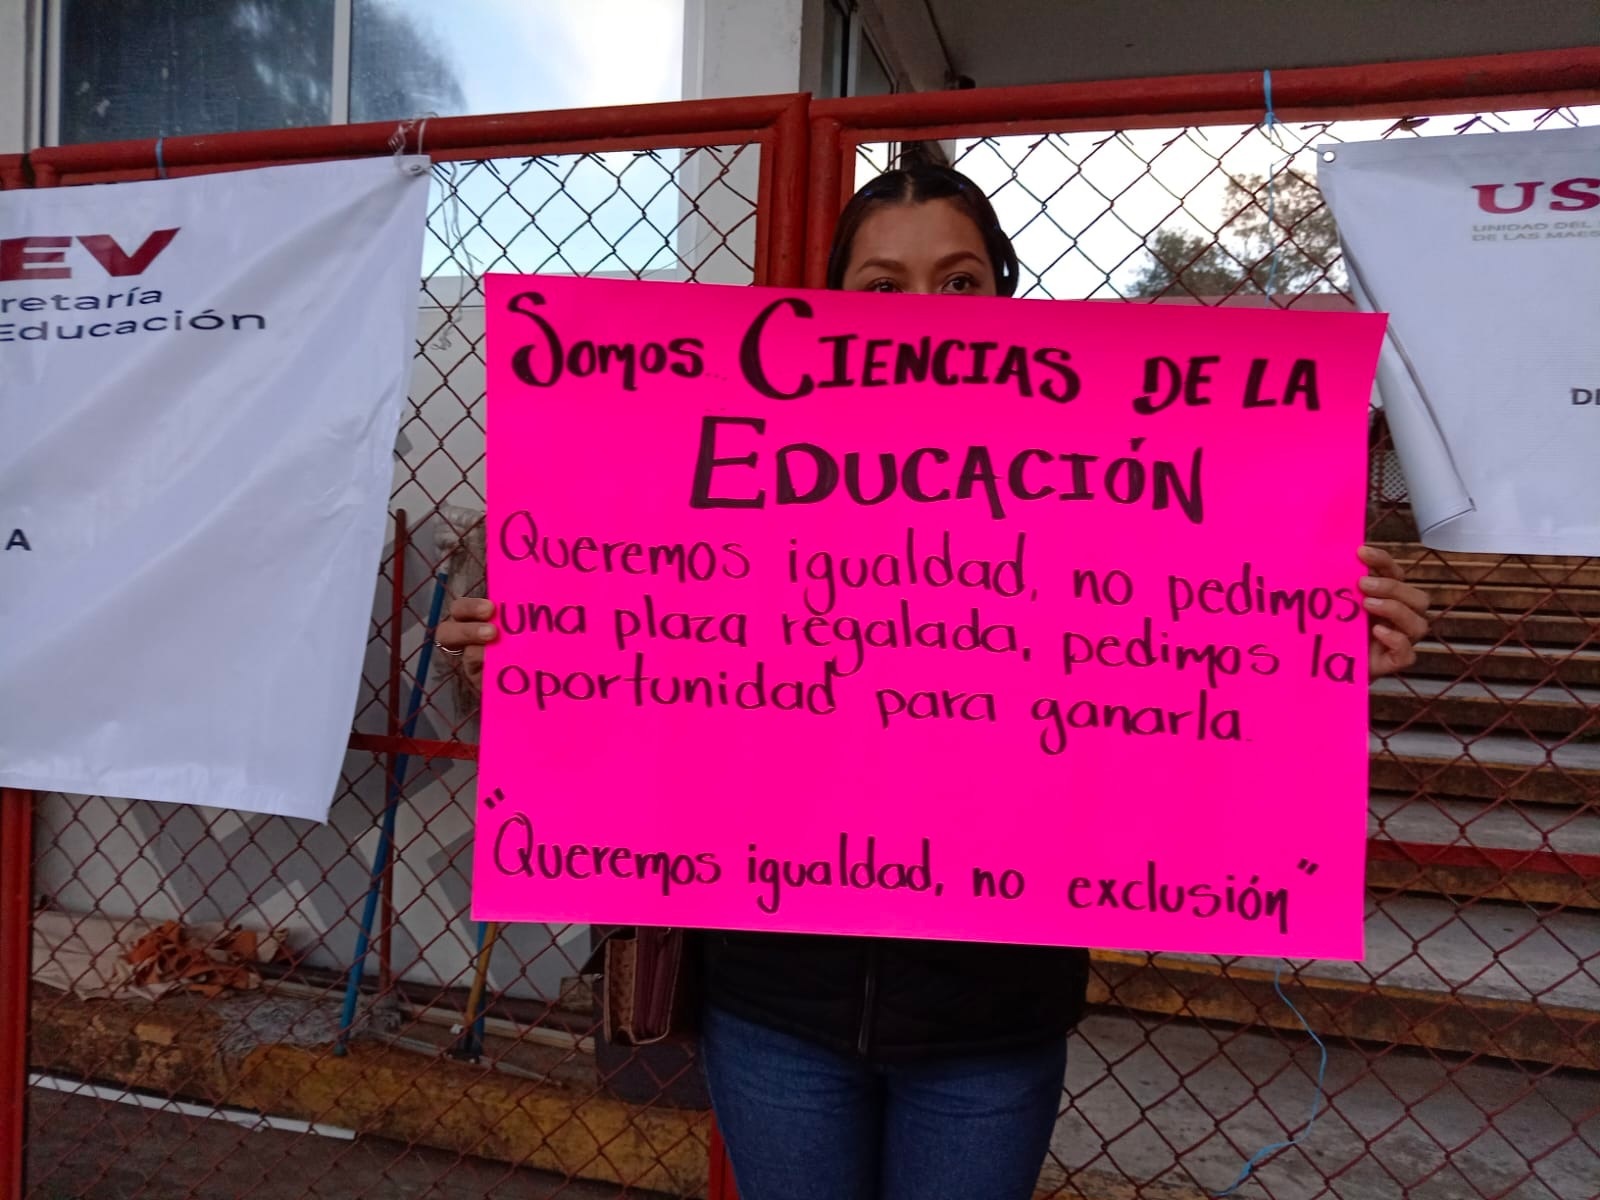 EV
retaría
Educación
A
US
UNIDAD DEL
DE LAS MAES
DE
Somos CIENCIAS DE LA
EDUCACIÓN
Queremos igualdad, no pedimos
una plaza regalada, pedimos la
oportunidad para ganarla.
"Queremos igualdad, no exclusión"